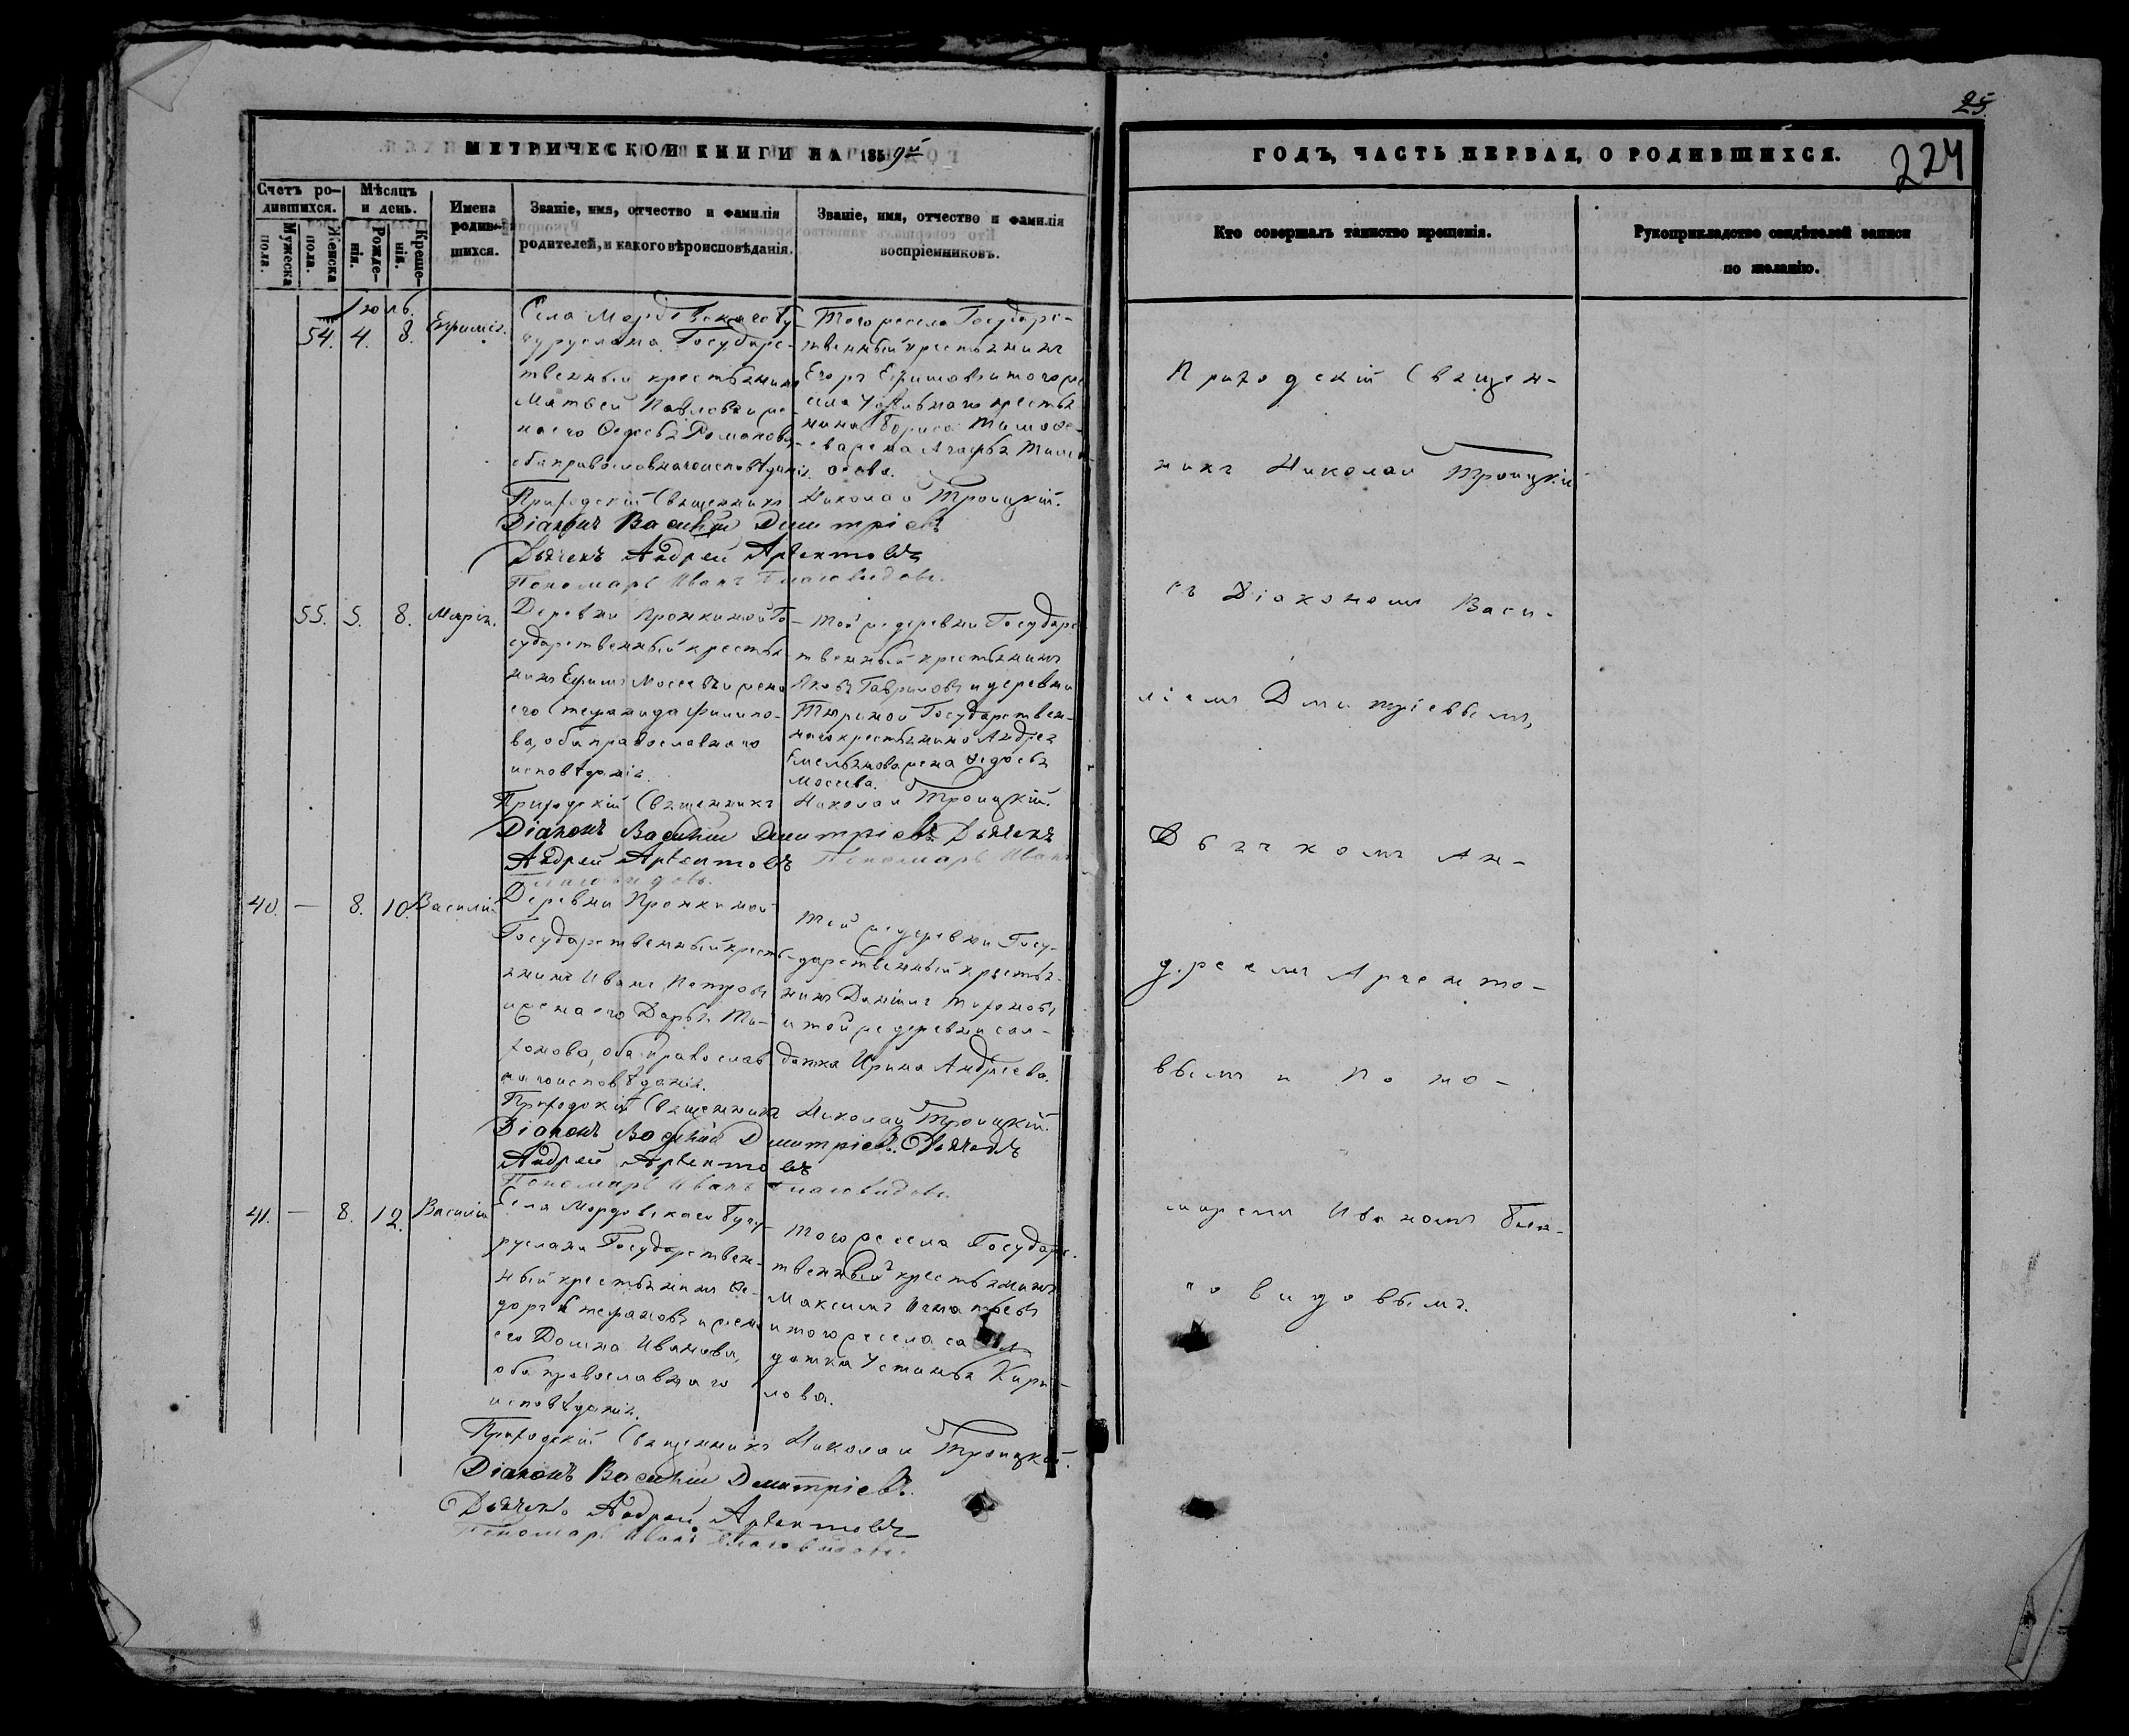 25
224
МЕТРИЧЕСКОЙ КНИГИ НА 1859й
Счетъ ро-
дившихся.
Мужеска
пола.
Женска
пола.
Мѣсяцъ
и день.
Рожде-
нія.
Креще-
нія.
Имена
родив-
шихся.
Званіе, имя, отчество и фамилія
родителей, и какого вѣроисповѣданія.
Званіе, имя, отчество и фамилія
воспріемниковъ.
Іюль.
54. 4. 8.
Села Мордовскаго Бу-
гуруслана Государс-
твенный крестьянинъ
Матвей Павловъ и же-
на его Федосья Романова
оба православнаго исповѣданія
Тогоже села Государс-
твенный крестьянинъ
Егоръ Ефимовъ и того же
села крестья
нина Бориса Тимофе-
ева жена Агафья
Приходскій Священникъ Николай Троицкій.
Діаконъ Василій Димитріевъ
Дьячекъ Андрей Архентовъ
Пономарь Иванъ Благовидовъ.
55. 5. 8. Марія.
Деревни Пронкиной Го-
сударственный крестья
нинъ Ефимъ Мосеевъ и жена
его Степанида Филипо-
ва, оба православнаго
исповѣданія.
Той же деревни Государс
твенный крестьянинъ
Яковъ Гавриловъ и деревни
Государствен-
наго крестьянина Андрея
Емельянова жена Федосья
Мосеева.
Приходскій Священникъ Николай Троицкій.
Діаконъ Василій Димитріевъ Дьячекъ
Андрей Архентовъ Пономарь Иванъ
Благовидовъ.
40. — 8. 10. Василій
Деревни Пронкиной
Государственный кресть-
янинъ Иванъ Петровъ
и жена его Дарья Ти-
хонова, оба православ
наго исповѣданія.
Той же деревни Госу-
дарственный крестья-
нинъ Даніилъ Тихоновъ
и той же деревни сол-
датка Ирина Андреева.
Приходскій Священникъ Николай Троицкій.
Діаконъ Василій Димитріевъ. Дьячекъ
Андрей Архентовъ
Пономарь Иванъ Благовидовъ.
41. — 8. 12. Василій
Села Мордовскаго Бугу-
руслана Государствен-
ный крестьянинъ Фе-
доръ Степановъ и жена
его Домна Иванова,
оба православнаго
исповѣданія.
Тогоже села Государс-
твенный крестьянинъ
Максимъ Игнатьевъ
и тогоже села сол
датка Устинья Кири-
лова.
Приходскій Священникъ Николай Троицкій.
Діаконъ Василій Димитріевъ.
Дьячекъ Андрей Архентовъ
Пономарь Иванъ Благовидовъ.
ГОДЪ, ЧАСТЬ ПЕРВАЯ, О РОДИВШИХСЯ.
Кто совершалъ таинство крещенія.
Рукоприкладство свидѣтелей записи
по желанію.
Приходскій Священ-
никъ Николай Троицкій
съ Діакономъ Васи-
ліемъ Димитріевымъ,
Дьячкомъ Ан-
дреемъ Архенто-
вымъ и Поно-
маремъ Иваномъ Бла-
говидовымъ.